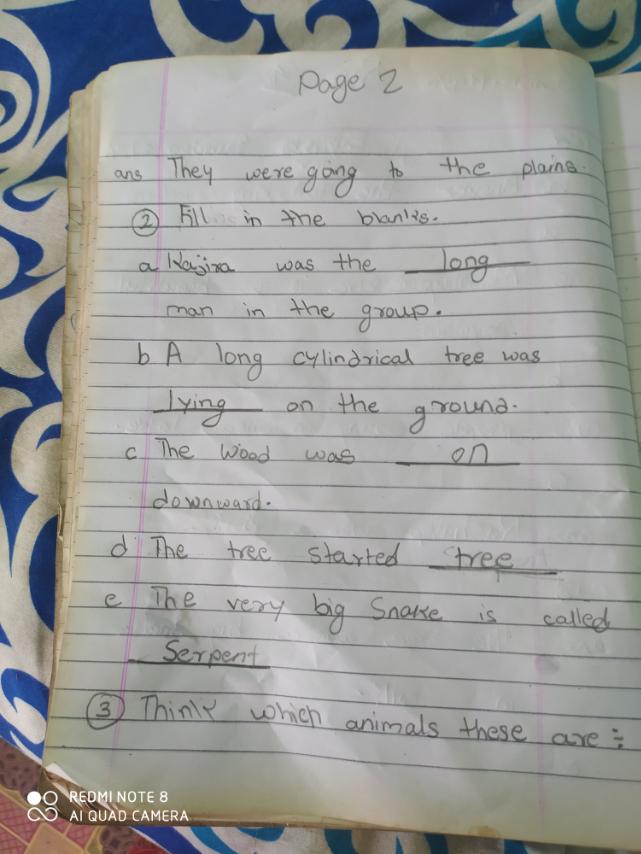 Page 2
ans They were going to the plains.
② Fill in the blanks.
a Kajira was the long
man in the group.
b A long cylindrical tree was
lying on the ground.
c The wood was on
downward.
d The tree started tree
e The very big Snake is called
Serpent
③ Think which animals these are :-
REDMI NOTE 8
AI QUAD CAMERA